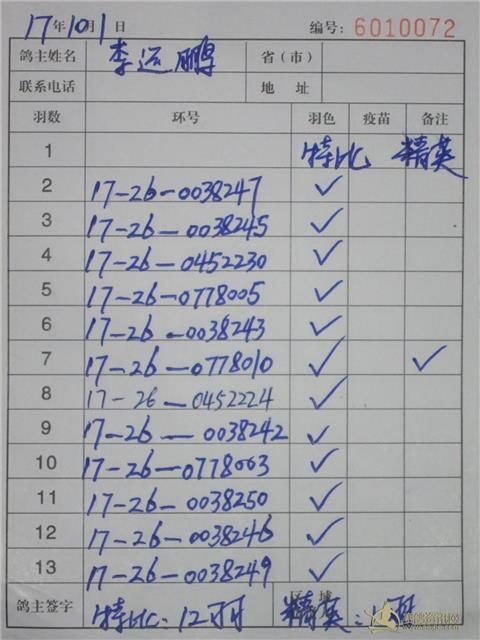 17年10月1日 编号: 6010072
鸽主姓名 李运鹏 省（市）
联系电话 地 址
羽数 环号 羽色 疫苗 备注
1 特比 精英
2 17-26-0038247 ✓
3 17-26-0038245 ✓
4 17-26-0452230 ✓
5 17-26-0778005 ✓
6 17-26-0038243 ✓
7 17-26-0778010 ✓ ✓
8 17-26-0452224 ✓
9 17-26-0038242 ✓
10 17-26-0778003 ✓
11 17-26-0038250 ✓
12 17-26-0038246 ✓
13 17-26-0038249 ✓
鸽主签字 特比: 12羽 精英: 1羽